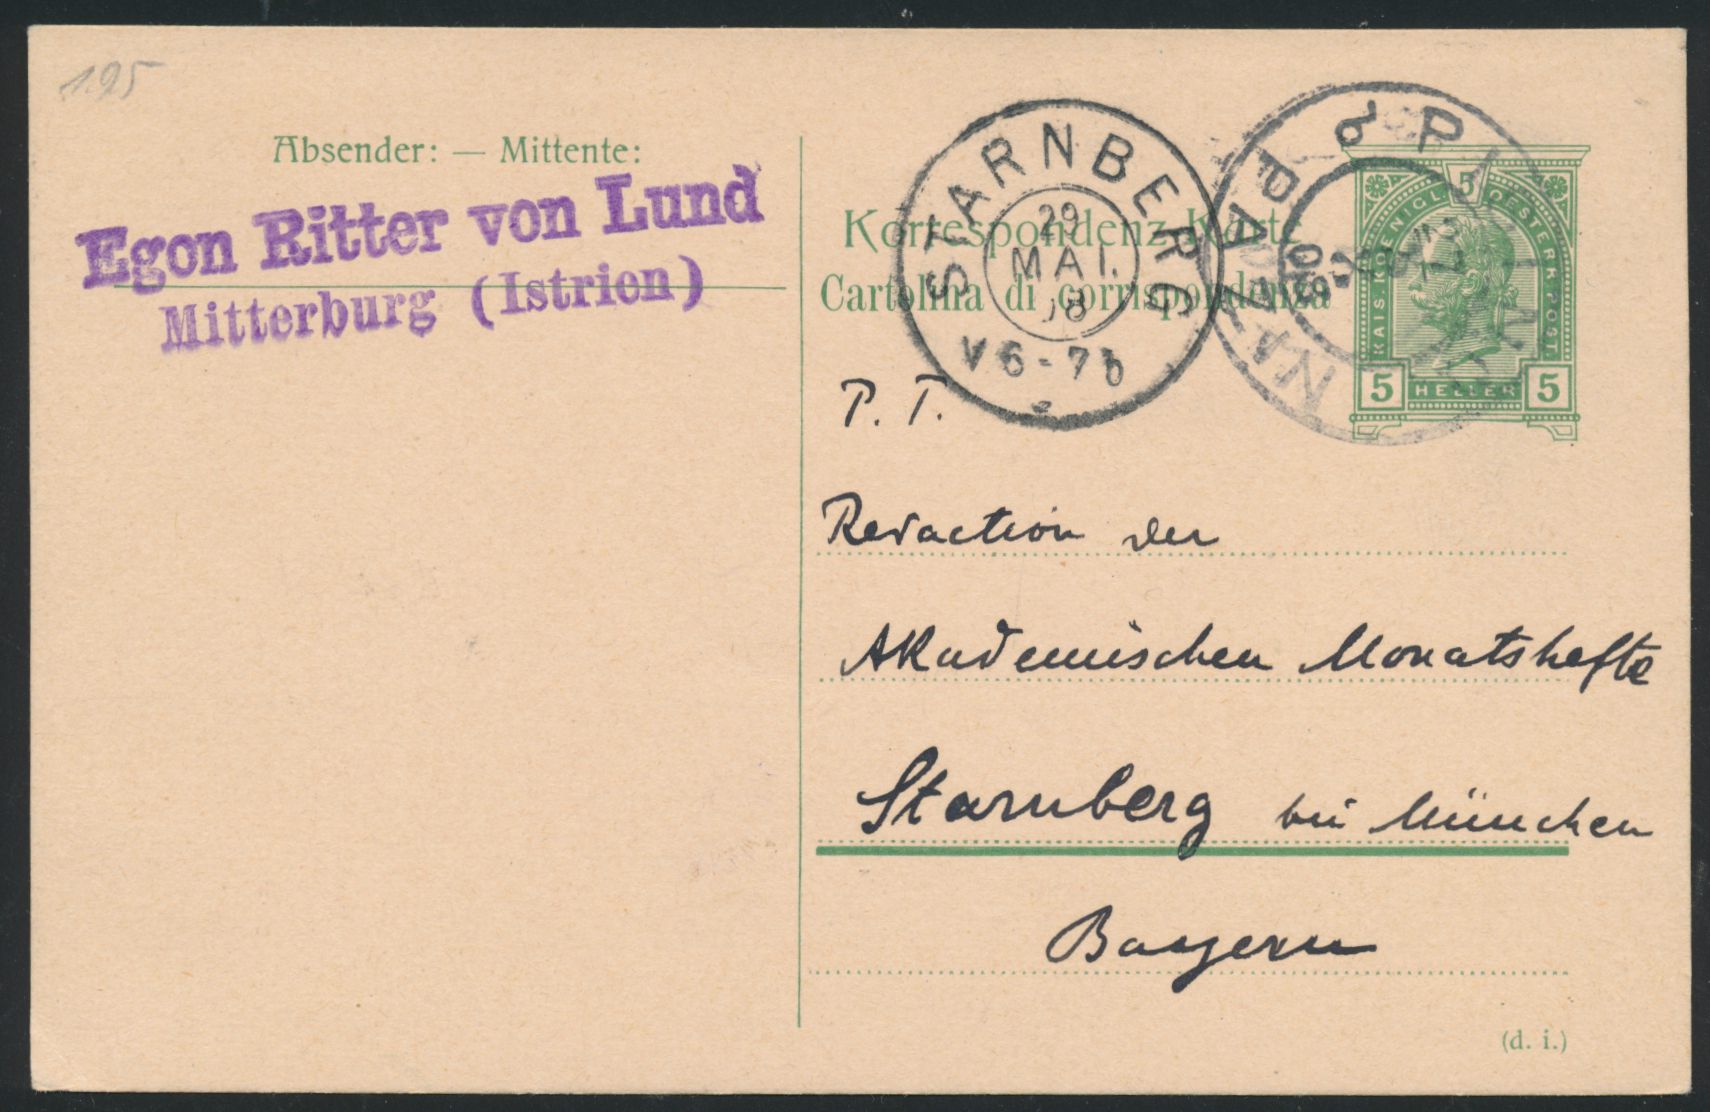 1.95
Absender: — Mittente:
Egon Ritter von Lund
Mitterburg (Istrien)
STARNBERG
29
MAI.
08
V 6-7
Korrespondenz-Karte
Cartolina di corrispondenza
5
KAIS. KOENIGL. OESTERR. POST.
5 HELLER 5
P. T.
Redaction der
Akademischen Monatshefte
Starnberg bei München
Bayern
(d. i.)